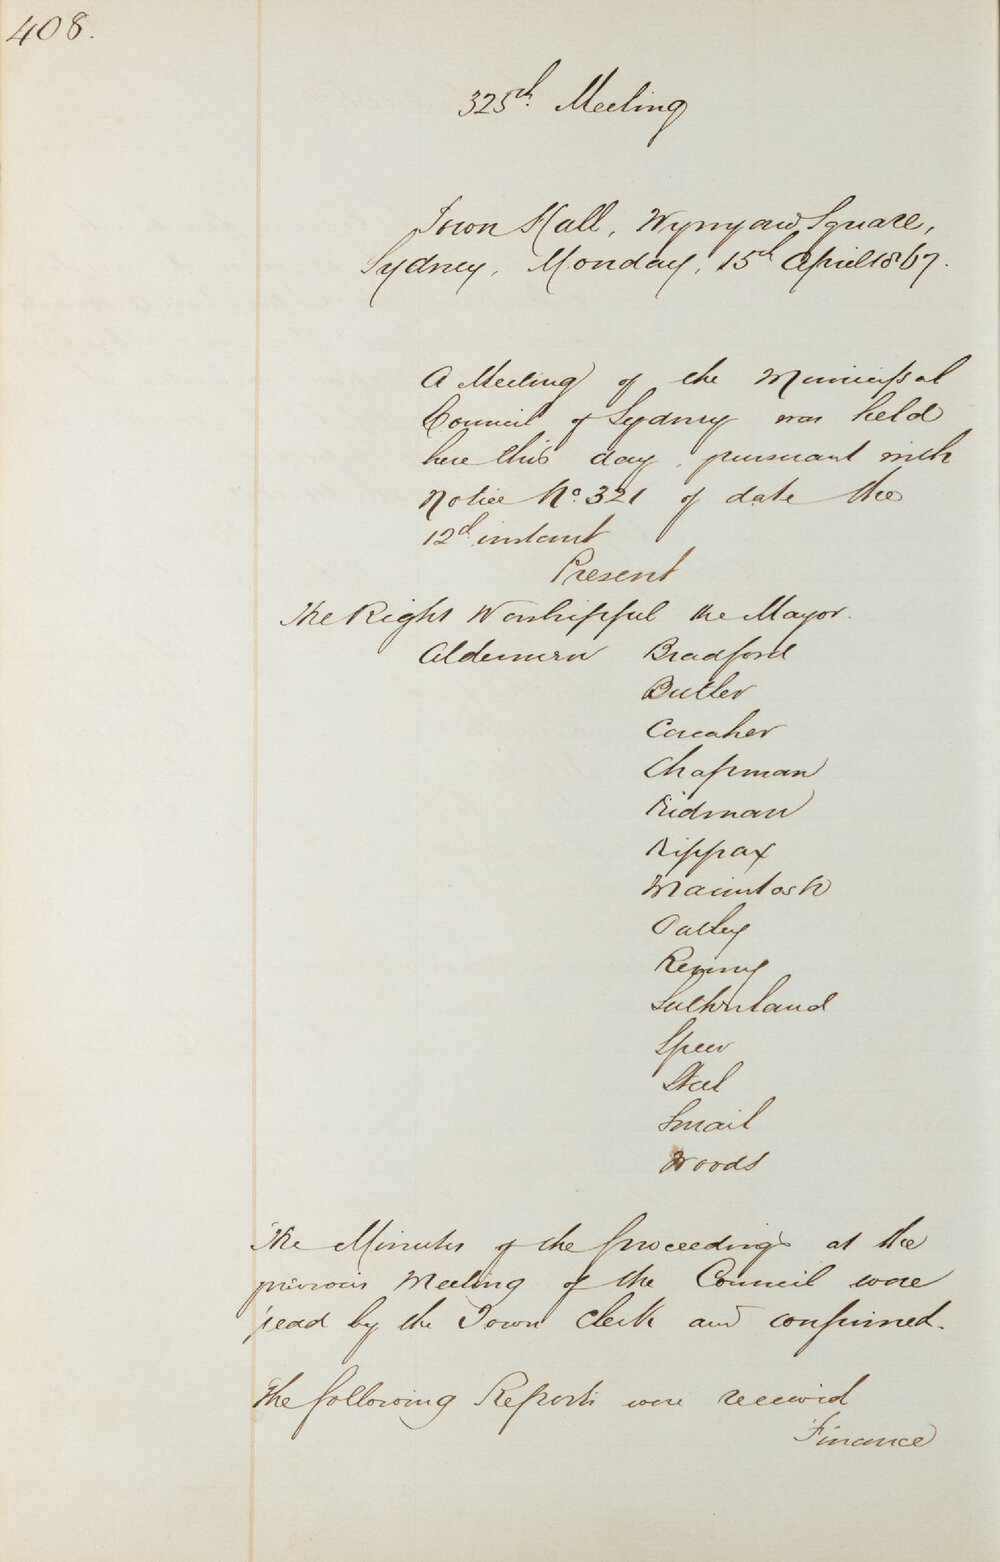 408.
325th Meeting
Town Hall, Wynyard Square,
Sydney, Monday, 15th April 1867.
A Meeting of the Municipal
Council of Sydney was held
here this day, pursuant with
Notice No. 321 of date the
12th instant
Present
The Right Worshipful the Mayor.
Aldermen Bradford
Butler
Caraher
Chapman
Kidman
Kippax
Macintosh
Oatley
Renny
Sutherland
Speer
Steel
Smail
Woods
The Minutes of the proceedings at the
previous Meeting of the Council were
read by the Town Clerk and confirmed.
The following Reports were received
Finance